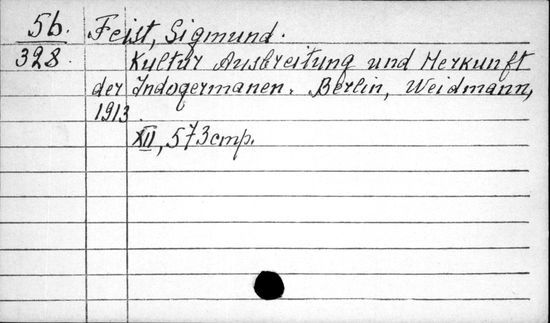 5б. Feist, Sigmund.
328. Kultur Ausbreitung und Herkunft
der Indogermanen. Berlin, Weidmann,
1913.
XII, 573 cmp.